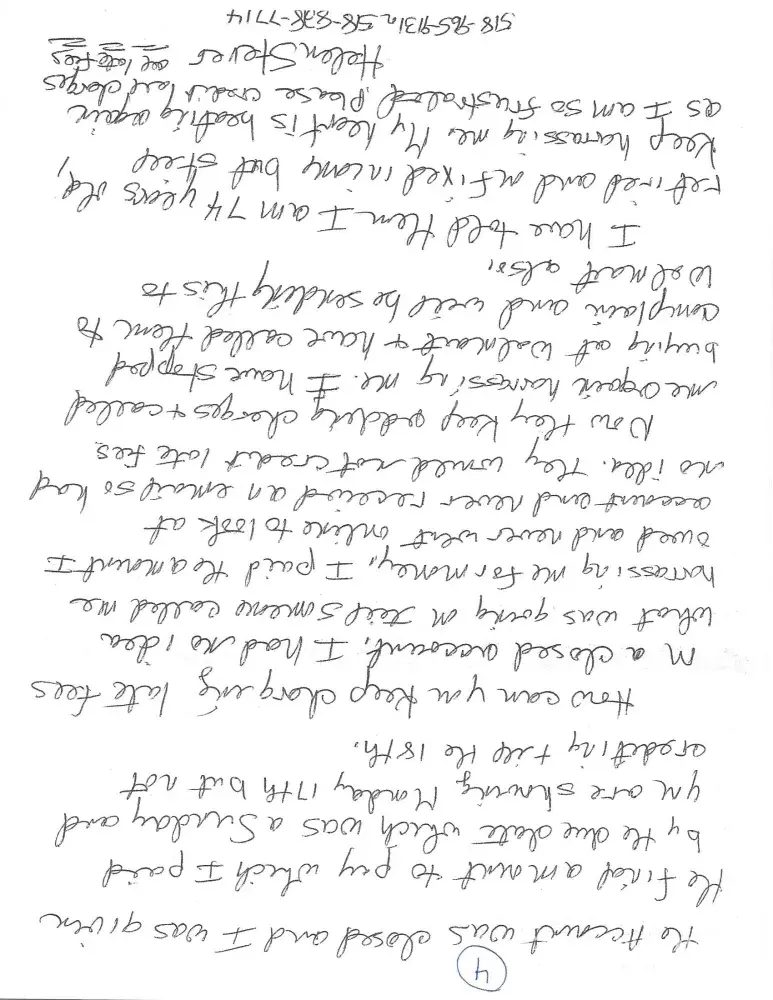 4
the Account was closed and I was given
the final amount to pay which I paid
by the due date which was a Sunday and
you are showing Monday 17th but not
crediting till the 18th.
How can you keep charging late fees
on a closed account, I had no idea
what was going on till someone called me
harrassing me for money, I paid the amount I
owed and never went online to look at
account and never received an email so had
no idea. They would not credit late fees
Now they keep adding charges + called
me again harrassing me. I have stopped
buying at Walmart + have called them to
complain and will be sending this to
Walmart also.
I have told them I am 74 years old,
retired and on fixed income but still
keep harrassing me. My heart is beating again
as I am so frustrated. Please credit all charges
Helen Stever all late fees
518-965-9131 518-828-7714